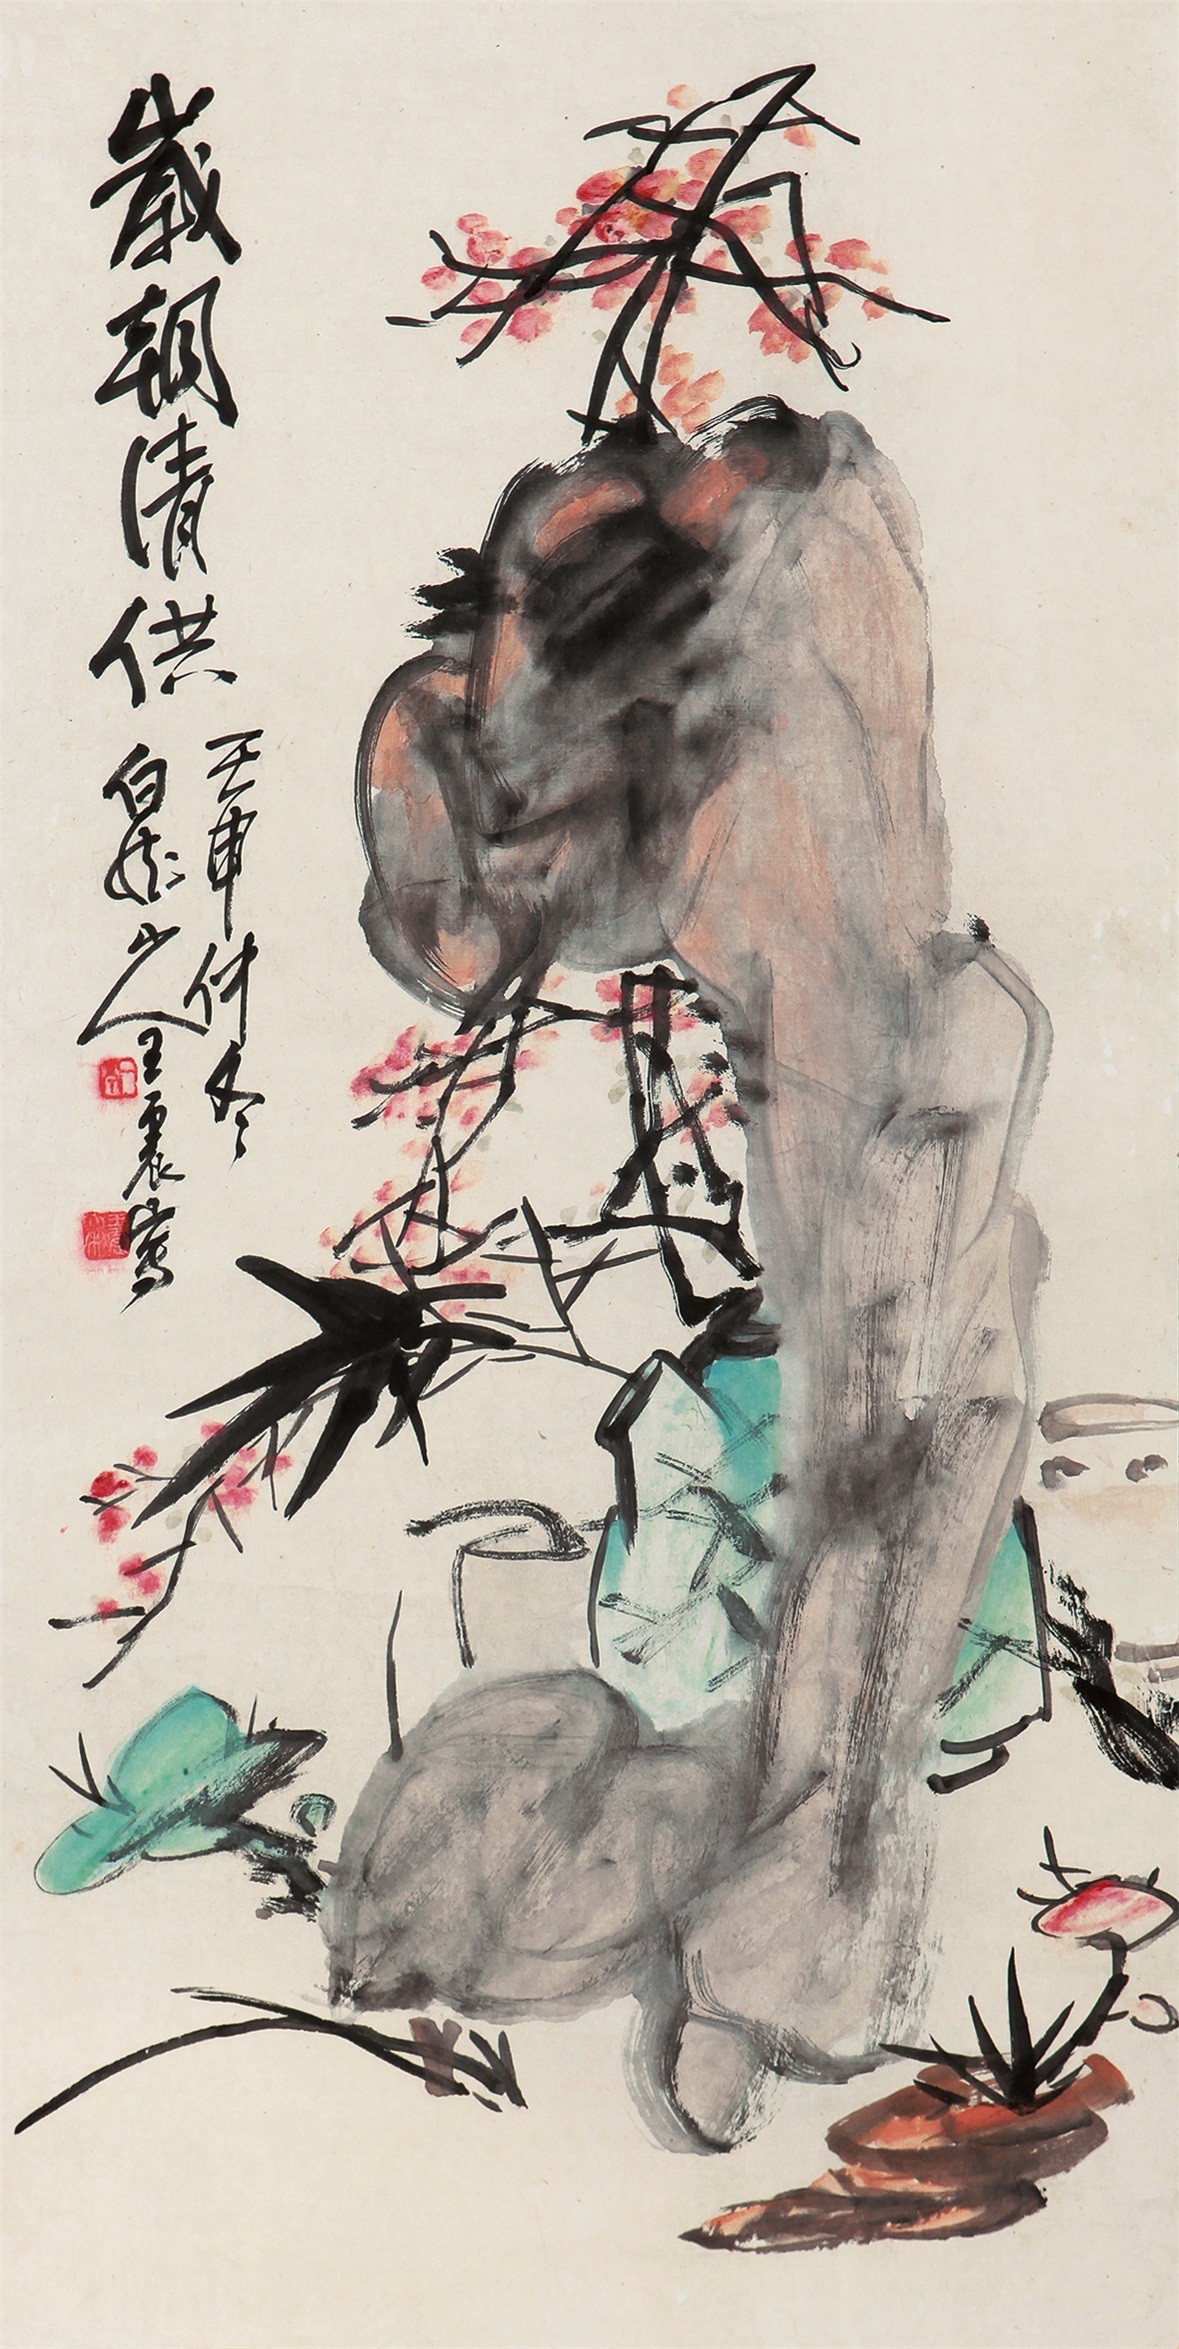 歲朝清供
壬申仲冬
白龍山人王震寫